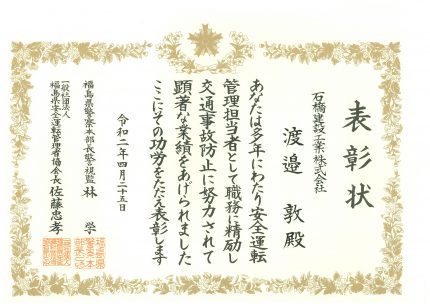 表彰状
石橋建設工業株式会社
渡邉 敦殿
あなたは多年にわたり安全運転
管理担当者として職務に精励し
交通事故防止に努力されて
顕著な業績をあげられました
ここにその功労をたたえ表彰します
令和二年四月二十五日
福島県警察本部長警視監 林 学
一般社団法人
福島県安全運転管理者協会会長 佐藤忠孝